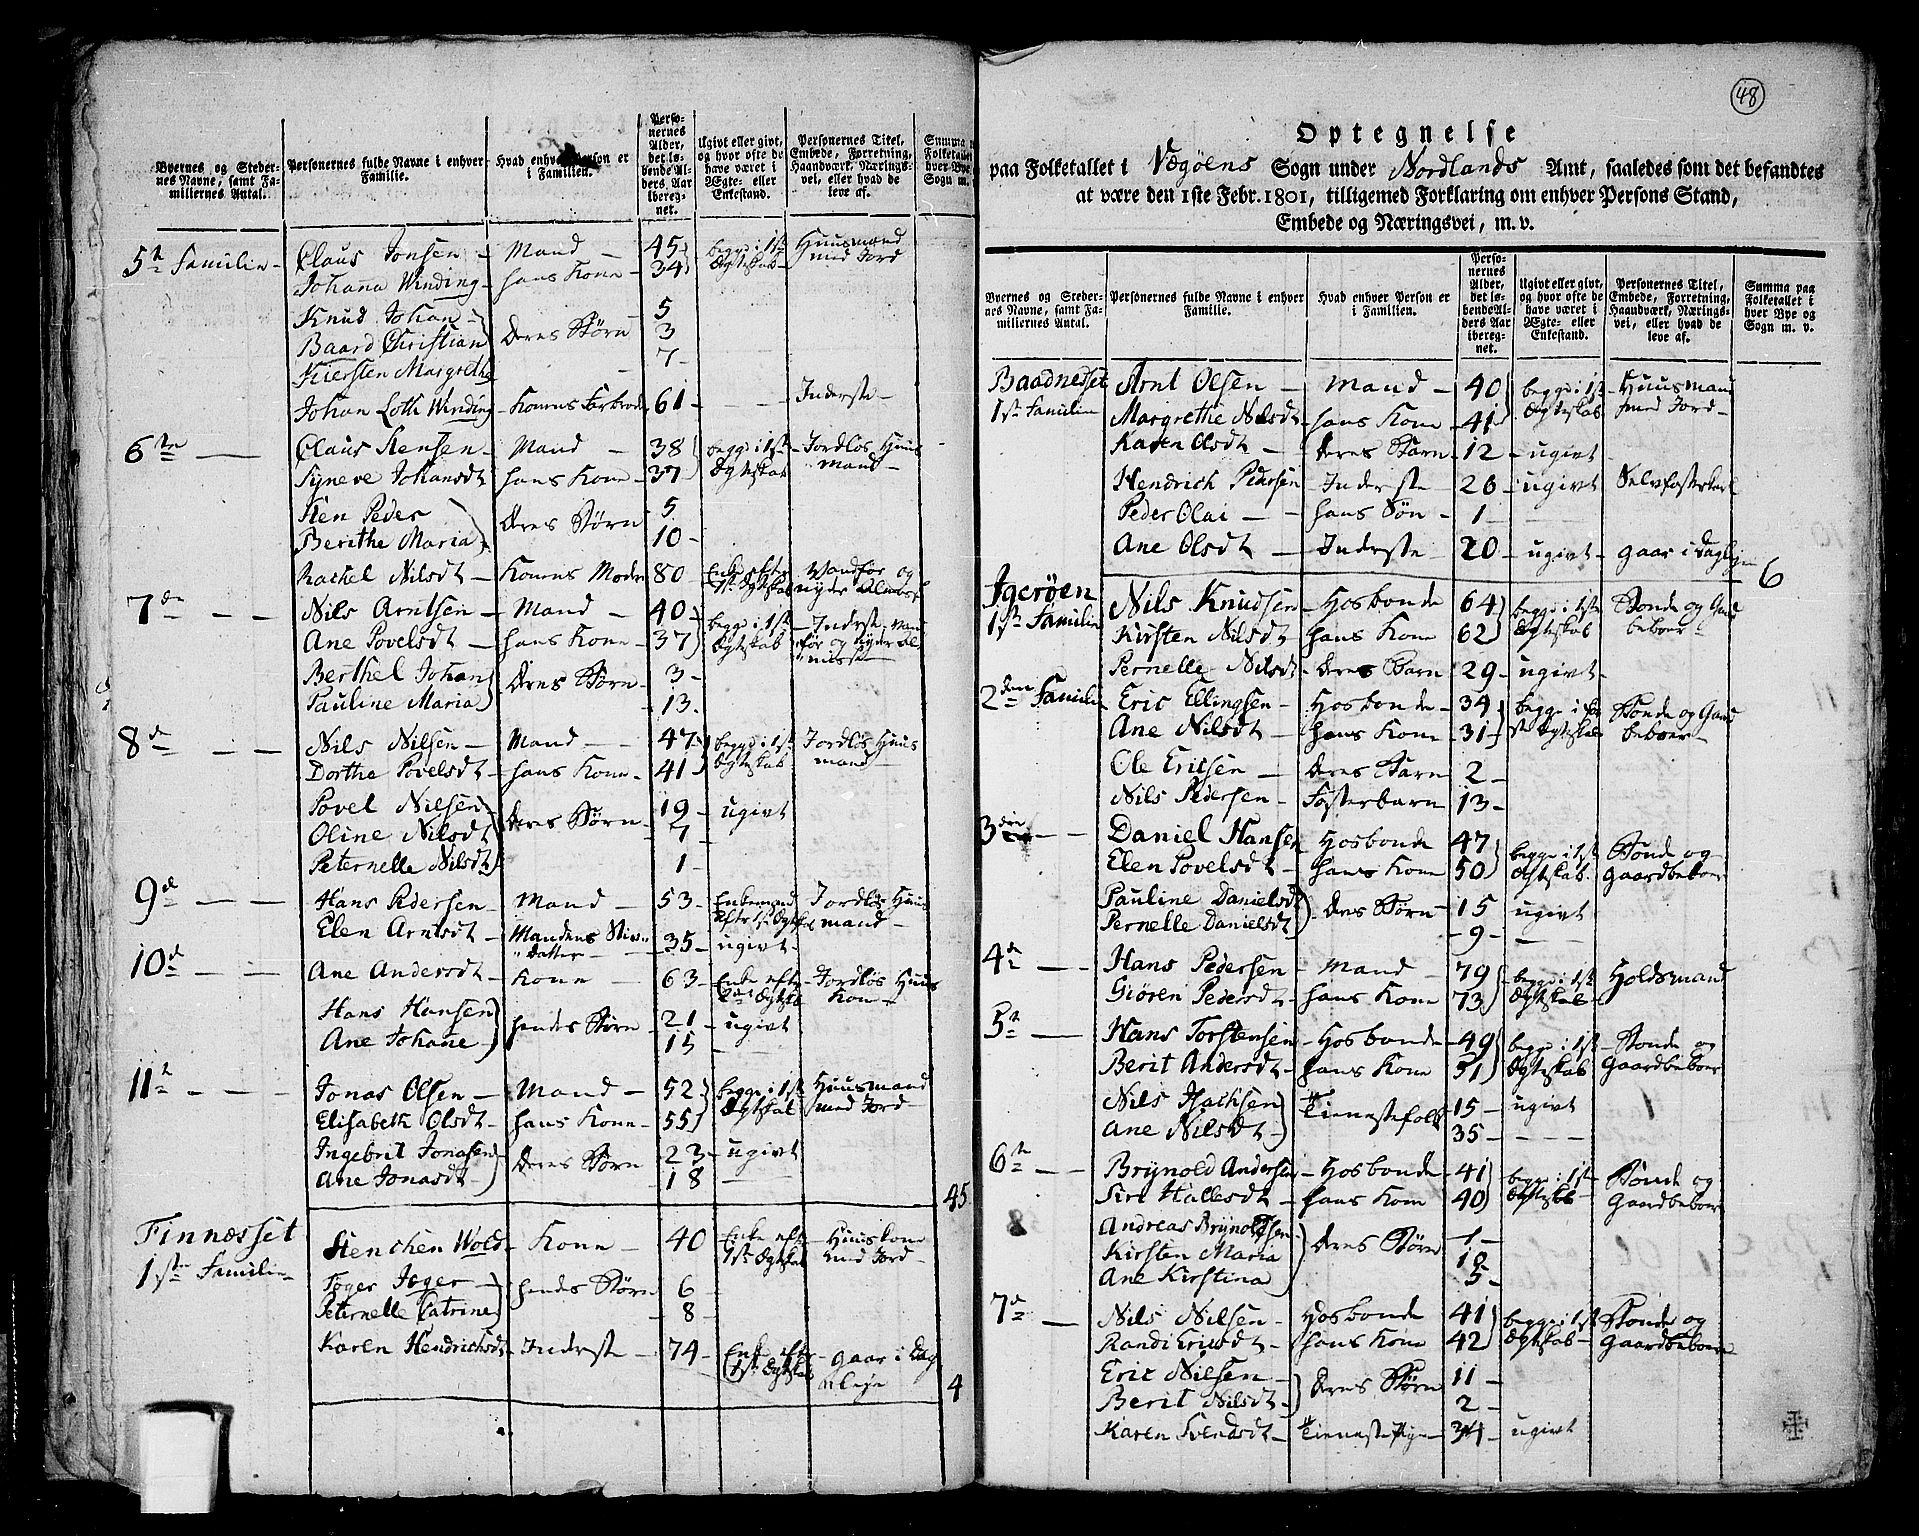 Byernes og Steder-
nes Navne, samt Fa-
miliernes Antal.
Personernes fulde Navne i enhver
Familie.
Hvad enhver Person er
i Familien.
Perso-
nernes
Alder,
det lø-
bende Al-
ders Aar
ibereg-
net.
Ugivt eller givt,
og hvor ofte de
have været i
Ægte- eller
Enkestand.
Personernes Titel,
Embede, Forretning,
Haandværk, Nærings-
vei, eller hvad de
leve af.
Summa
Folketallet
hver Bye
Sogn m.
5te Familie Claus Jonsen Mand 45 begge i 1ste Huusmand
Johana Winding hans Kone 34 Ægteskab med Jord
Knud Johan 5
Baard Christian Deres Børn 3
Kiersten Margrethe 7
Johan Loth Winding Konens 61 Inderste
6te Claus Stensen Mand 38 begge i 1ste Jordløs Huus
Syneve Johansdt hans Kone 37 Ægteskab mand
Sten Peder 5
Berithe Maria Deres Børn 10
Rachel Nilsdt Konens Moder 80 Enke efter Vandfør og
1ste Ægteskab nyder Almisse
7de Nils Arntsen Mand 40 begge i 1ste Inderste Van
Ane Povelsdt hans Kone 37 Ægteskab før og nyder Al
misse
Berthel Johan Deres Børn 3
Pauline Maria 13
8de Nils Nilsen Mand 47 begge i 1ste Jordløs Huus
Dorthe Povelsdt hans Kone 41 Ægteskab mand
Povel Nilsen 19 ugivt
Oline Nilsdt Deres Børn 7
Peternelle Nilsdt 1
9de Hans Pedersen Mand 53 Enkemand Jordløs Huus
efter 1ste Ægteskab mand
Elen Arntsdt Mandens Stiv 35 ugivt
Datter
10de Ane Andersdt Kone 63 Enke efter Jordløs Huus
2det Ægteskab Kone
Hans Hansen hendes Børn 21 ugivt
Ane Johane 15
11te Jonas Olsen Mand 52 begge i 1ste Huusmand
Elisabeth Olsdt hans Kone 55 Ægteskab med Jord
Ingebrit Jonasen Deres Børn 23 ugivt
Ane Jonasdt 18
45
Finnæsset
1ste Familie Stenchen Wold Kone 40 Enke efter Huuskone
1ste Ægteskab med Jord
Jæger hendes Børn 6
Peternelle Catrine 8
Karen Hendrichsdt Inderste 74 Enke efter gaar i Dag
1ste Ægteskab leje
4
48
Optegnelse
paa Folketallet i Vægøens Sogn under Nordlands Amt, saaledes som det befandtes
at være den 1ste Febr. 1801, tilligemed Forklaring om enhver Persons Stand,
Embede og Næringsvei, m. v.
Byernes og Steder-
nes Navne, samt Fa-
miliernes Antal.
Personernes fulde Navne i enhver
Familie.
Hvad enhver Person er
i Familien.
Perso-
nernes
Alder,
det lø-
bende Al-
ders Aar
iberег-
net.
Ugivt eller givt,
og hvor ofte de
have været i
Ægte- eller
Enkestand.
Personernes Titel,
Embede, Forretning,
Haandværk, Nærings-
vei, eller hvad de
leve af.
Summa paa
Folketallet i
hver Bye og
Sogn m. v.
Baadnedset Arnt Olsen Mand 40 begge i 1ste Huusmand
1ste Familie Margrethe Nilsdt hans Kone 41 Ægteskab med Jord
Karen Olsdt Deres Barn 12 ugivt
Hendrich Pedersen Inderste 26 ugivt Selvfosterkarl
Peder Olai hans Søn 1
Ane Olsdt Inderste 20 ugivt gaar i Dagleje
6
Jgerøen Nils Knudsen Hosbonde 64 begge i 1ste Bonde og Gaard
1ste Familie Kirsten Nilsdt hans Kone 62 Ægteskab beboer
Pernelle Nilsdt Deres Barn 29 ugivt
2den Familie Eric Ellingsen Hosbonde 34 begge i før Bonde og Gaard
Ane Nilsdt hans Kone 31 ste Ægteskab beboer
Ole Ericsen Deres Barn 2
Nils Pedersen Fosterbarn 13
3die Daniel Hansen Hosbonde 47 begge i 1ste Bonde og
Elen Povelsdt hans Kone 50 Ægteskab gaardbeboer
Pauline Danielsdt Deres Børn 15 ugivt
Pernelle Danielsdt 9
4de Hans Pedersen Mand 79 begge i 1ste Holdsmand
Giøren Pedersdt hans Kone 73 Ægteskab
5te Hans Torstensen Hosbonde 49 begge i 1ste Bonde og
Berit Andersdt hans Kone 51 Ægteskab Gaardbeboer
Nils Isachsen Tienestefolk 15 ugivt
Ane Nilsdt 35
6te Brÿnold Andersen Hosbonde 41 begge i 1ste Bonde og
Siri Hallesdt hans Kone 40 Ægteskab Gaardbeboer
Andreas Brÿnoldsen 1
Kirsten Maria Deres Børn 18
Ane Kirstina 5
7de Nils Nilsen Hosbonde 41 begge i 1ste Bonde og
Randi Ericsdt hans Kone 42 Ægteskab Gaardbeboer
Eric Nilsen Deres Børn 11
Berit Nilsdt 2
Karen Svendsdt Tienestepige 34 ugivt